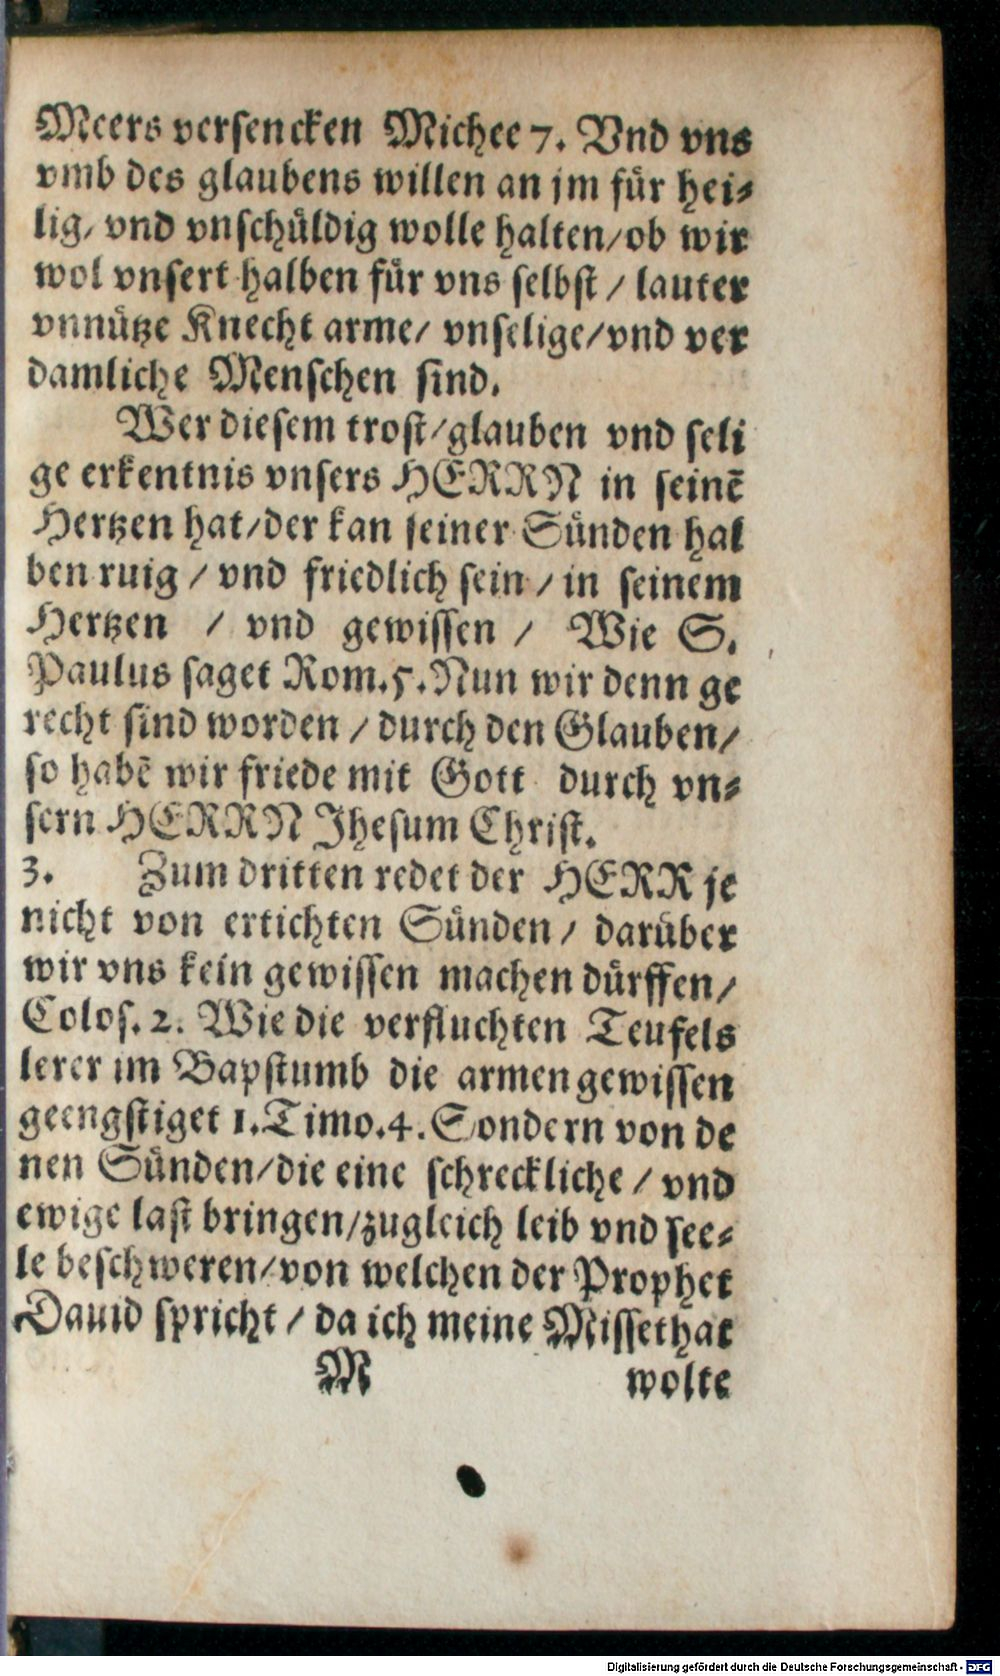 Meers versencken Michee 7. Vnd vns
vmb des glaubens willen an jm für hei-
lig/ vnd vnschüldig wolle halten/ob wir
wol vnsert halben für vns selbst / lauter
vnnütze Knecht arme/ vnselige/vnd ver
damliche Menschen sind.
Wer diesem trost/glauben vnd seli
ge erkentnis vnsers HERRN in seinē
Hertzen hat/der kan seiner Sünden hal
ben ruig / vnd friedlich sein / in seinem
Hertzen / vnd gewissen / Wie S.
Paulus saget Rom.5.Nun wir denn ge
recht sind worden / durch den Glauben/
so habē wir friede mit Gott durch vn-
sern HERRN Jhesum Christ.
3. Zum dritten redet der HERR je
nicht von ertichten Sünden / darüber
wir vns kein gewissen machen dürffen/
Colos.2. Wie die verfluchten Teufels
lerer im Bapstumb die armen gewissen
geengstiget 1.Timo.4.Sondern von de
nen Sünden/die eine schreckliche / vnd
ewige last bringen/zugleich leib vnd see-
le beschweren/von welchen der Prophet
Dauid spricht / da ich meine Missethat
M wolte
Digitalisierung gefördert durch die Deutsche Forschungsgemeinschaft - DFG